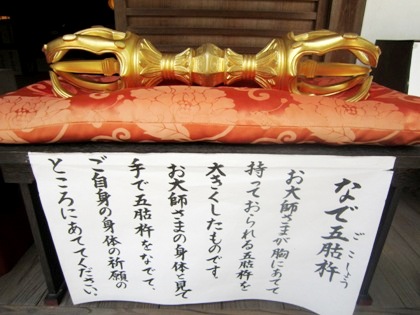 なで五鈷杵
ごこしょう
お大師さまが胸にあてて
持っておられる五鈷杵を
大きくしたものです。
お大師さまの身体と見て
手で五鈷杵をなでて、
ご自身の身体の祈願の
ところにあててください。